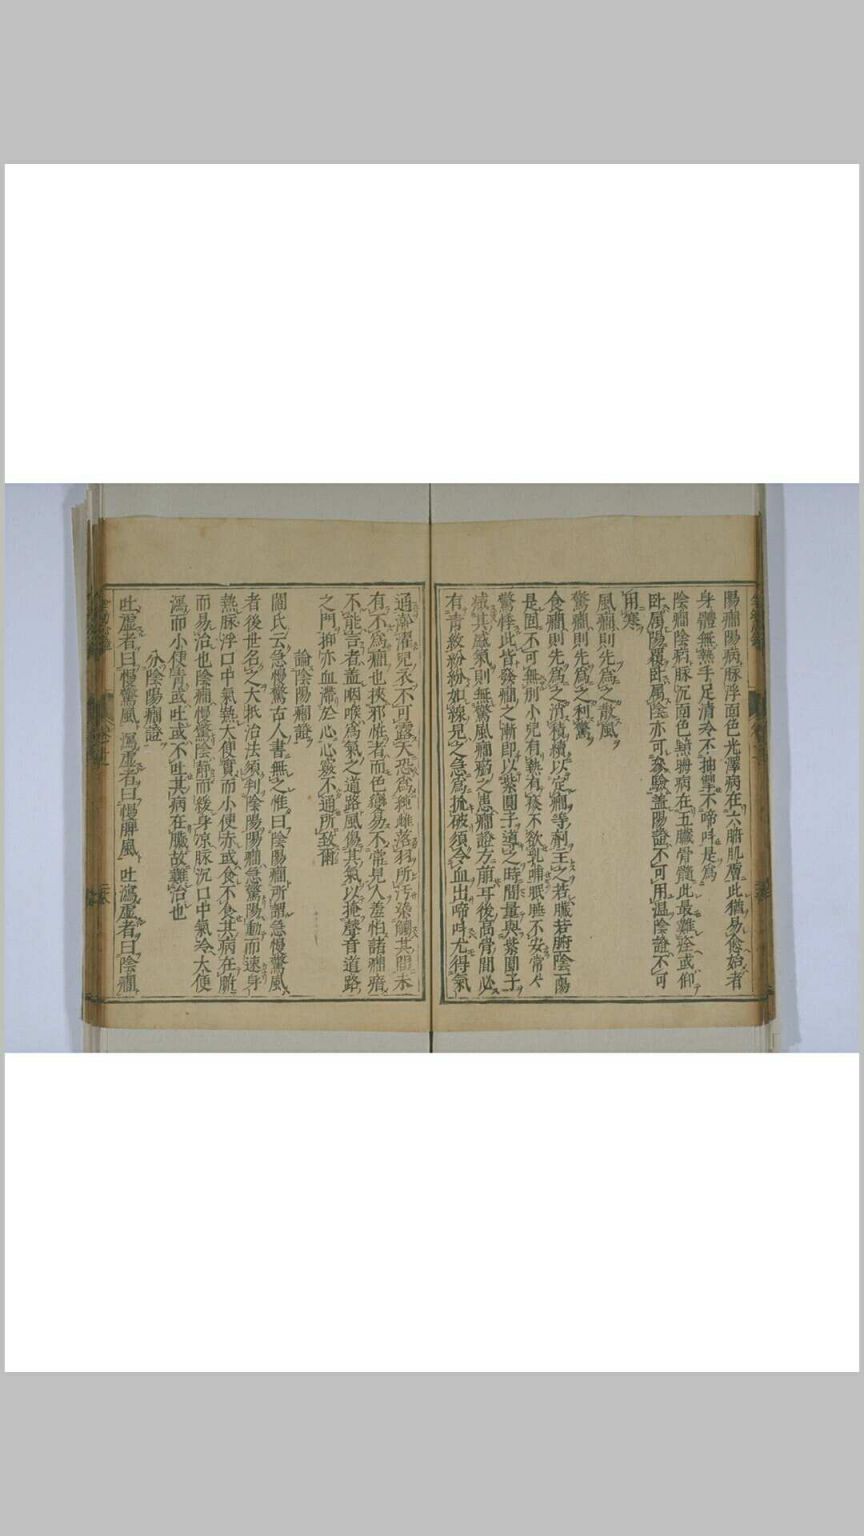 陽癇陽病脉浮面色光澤病在六腑肌膚此猶易愈始者
身體無熱手足清冷不抽掣不啼呌是為
陰癇陰病脉沉面色黯黲病在五臓骨髓此最難痊或仰
臥屬陽覆臥屬陰亦可參驗蓋陽證不可用温陰證不可
用寒
風癇則先為之散風
驚癇則先為之利驚
食癇則先為之消積續以定癇等劑主之若臓若腑陰陽
是固不可無別小兒有熱有痰不欲乳哺眠睡不安常常
驚悸此皆發癇之漸即以紫圓子導之時間量與紫圓子
减其盛氣則無驚風癇癎之患癇證方萠耳後高骨間必
有青紋紛紛如線見之急為抓破須令血出啼呌尤得氣
通澣濯兒衣不可露天恐為雌雄落羽所汚染觸其間未
有不為癇也挾邪怪者面色變易不常見人羞怕諸癇瘖
不能言者蓋咽喉為氣之道路風傷其氣以掩聲音道路
之門抑亦血滯於心心竅不通所致爾
論陰陽癇證
閻氏云急慢驚古人書無之惟曰陰陽癇所謂急慢驚風
者後世名之大抵治法須判陰陽陽癇急驚陽動而速身
熱脉浮口中氣熱大便實而小便赤或食不食其病在腑
而易治也陰癇慢驚陰靜而緩身凉脉沉口中氣冷大便
瀉而小便青或吐或不吐其病在臓故難治也
分陰陽癇證
吐虛者曰慢驚風 瀉虛者曰慢脾風 吐瀉虛者曰陰癇